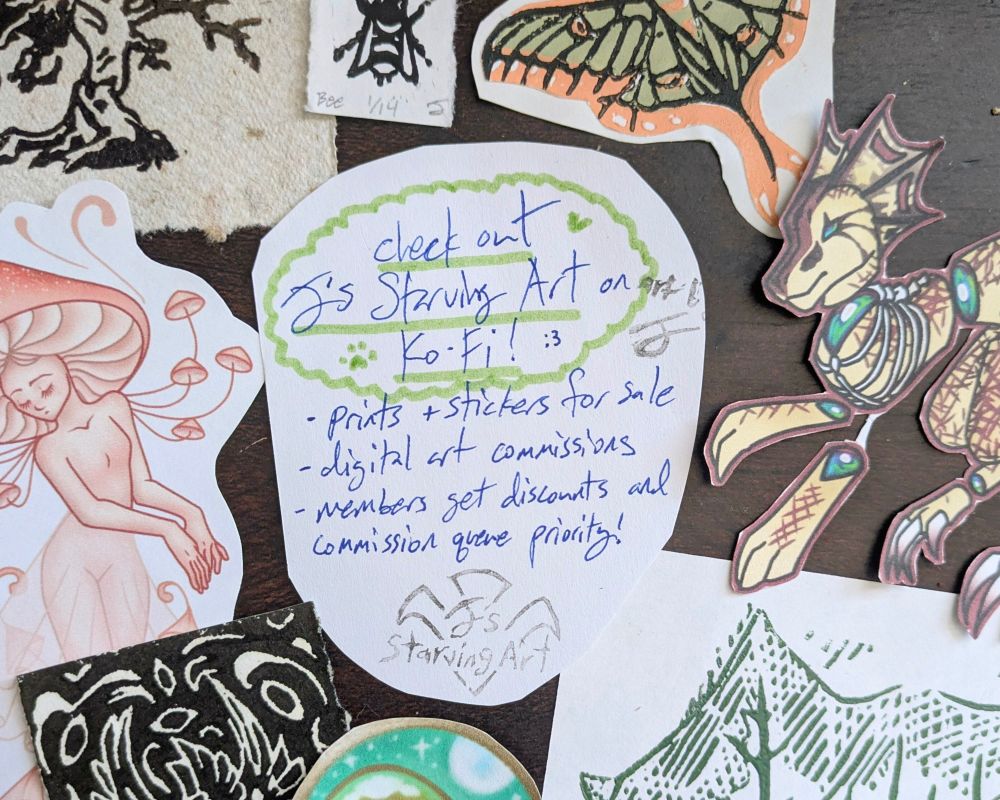 Bee 1/14 J
check out
J's Starving Art on
Ko-Fi! :3
- prints + stickers for sale
- digital art commissions
- members get discounts and
commission queue priority!
J's
Starving Art